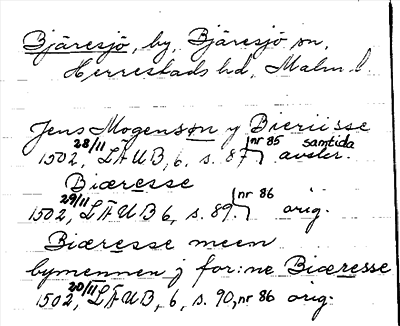 Bjäresjö, by, Bjäresjö sn,
Herrestads hd, Malm. l.
Jens Mogenson y Bieriisse
1502, 28/11 LÄUB, 6, s. 87, nr 85 samtida avskr.
Biæresse
1502, 29/11 LÄUB 6, s. 89. nr 86 orig.
Biæresse meen
bymennen j for:ne Biæresse
1502, 20/11 LÄUB, 6, s. 90, nr 86 orig.